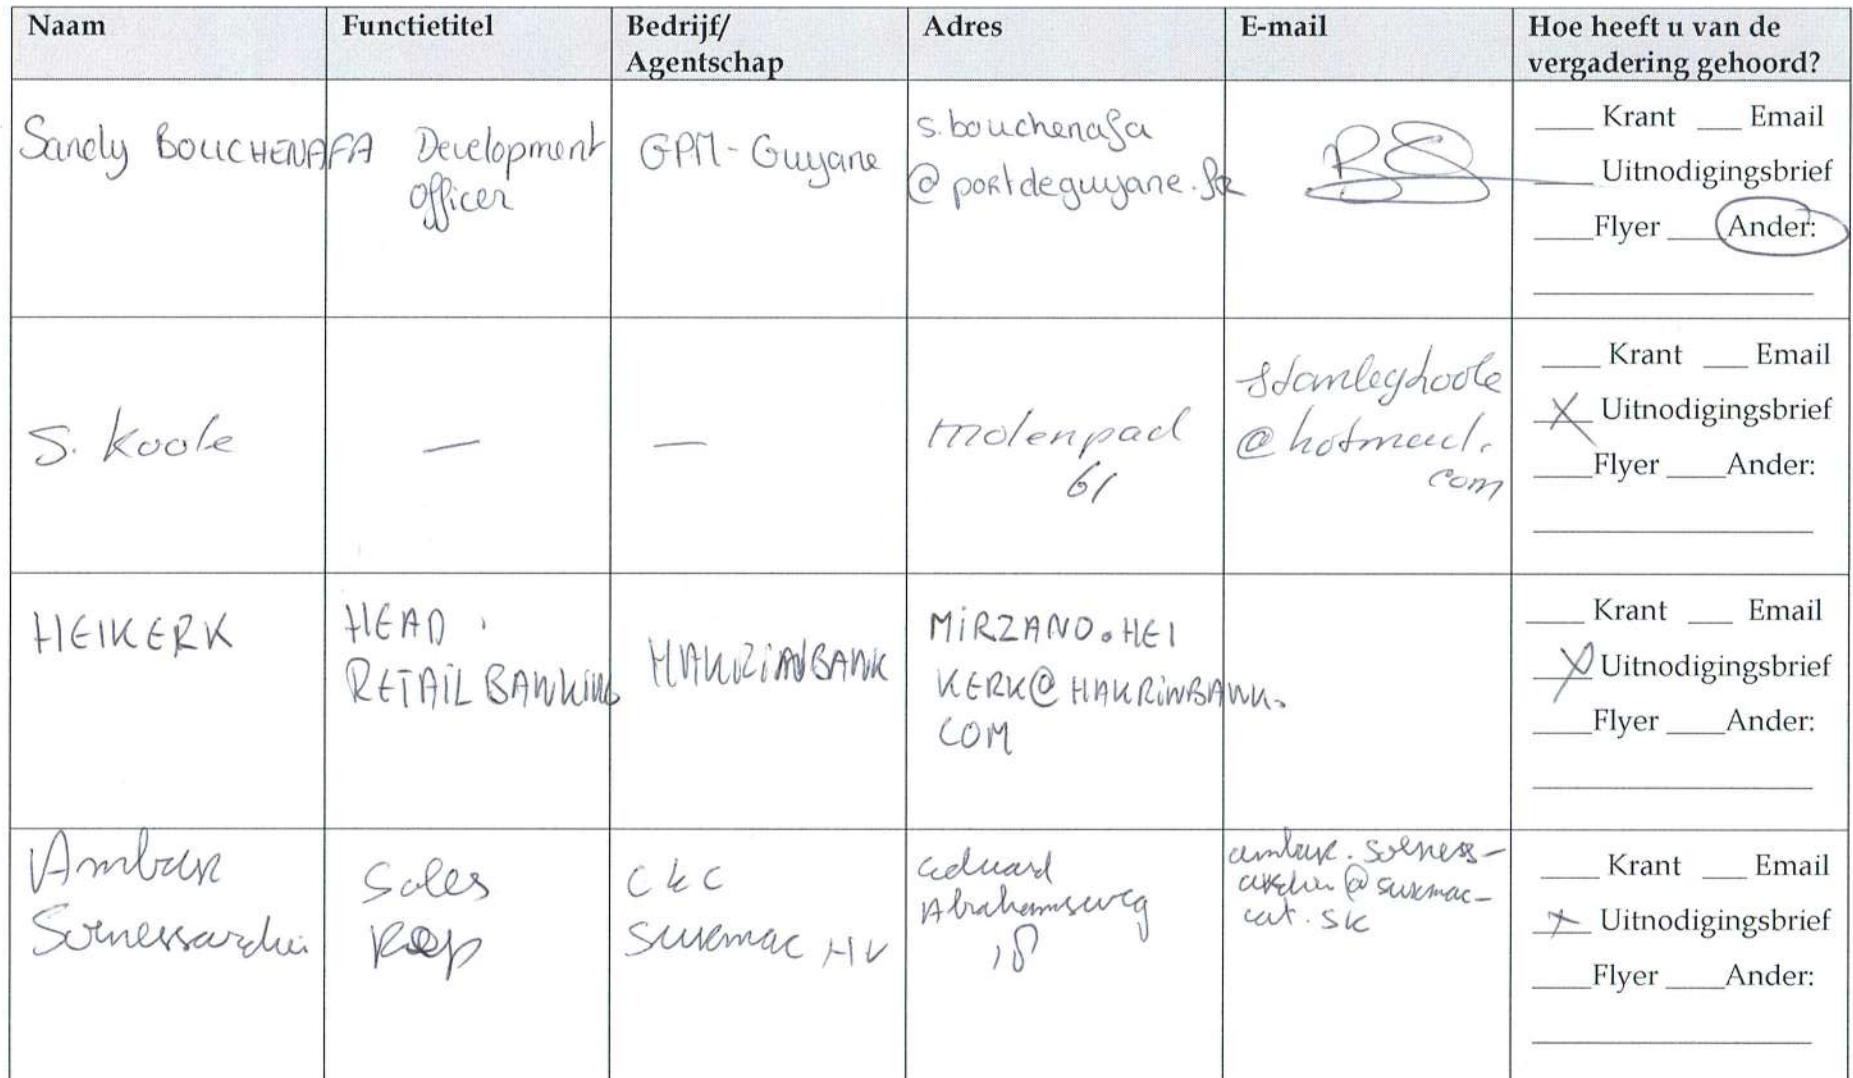 Naam Functietitel Bedrijf/ Adres E-mail Hoe heeft u van de
Agentschap vergadering gehoord?
Sandy BOUCHENAFA
Development
Officer
GPM-Guyane
s.bouchenafa
@portdeguyane.fr
___ Krant ___ Email
___ Uitnodigingsbrief
___Flyer ___Ander:
S. Koole
—
—
molenpad
61
stanleykoole
@hotmail.
com
___ Krant ___ Email
X Uitnodigingsbrief
___Flyer ___Ander:
HEIKERK
HEAD
RETAIL BANKING
HAKRINBANK
MiRZANO.HEI
KERK@HAKRiNBANK.
COM
___ Krant ___ Email
X Uitnodigingsbrief
___Flyer ___Ander:
Sales
Rep
CKC
Surmac NV
Eduard
Abrahamsweg
18
___ Krant ___ Email
X Uitnodigingsbrief
___Flyer ___Ander: